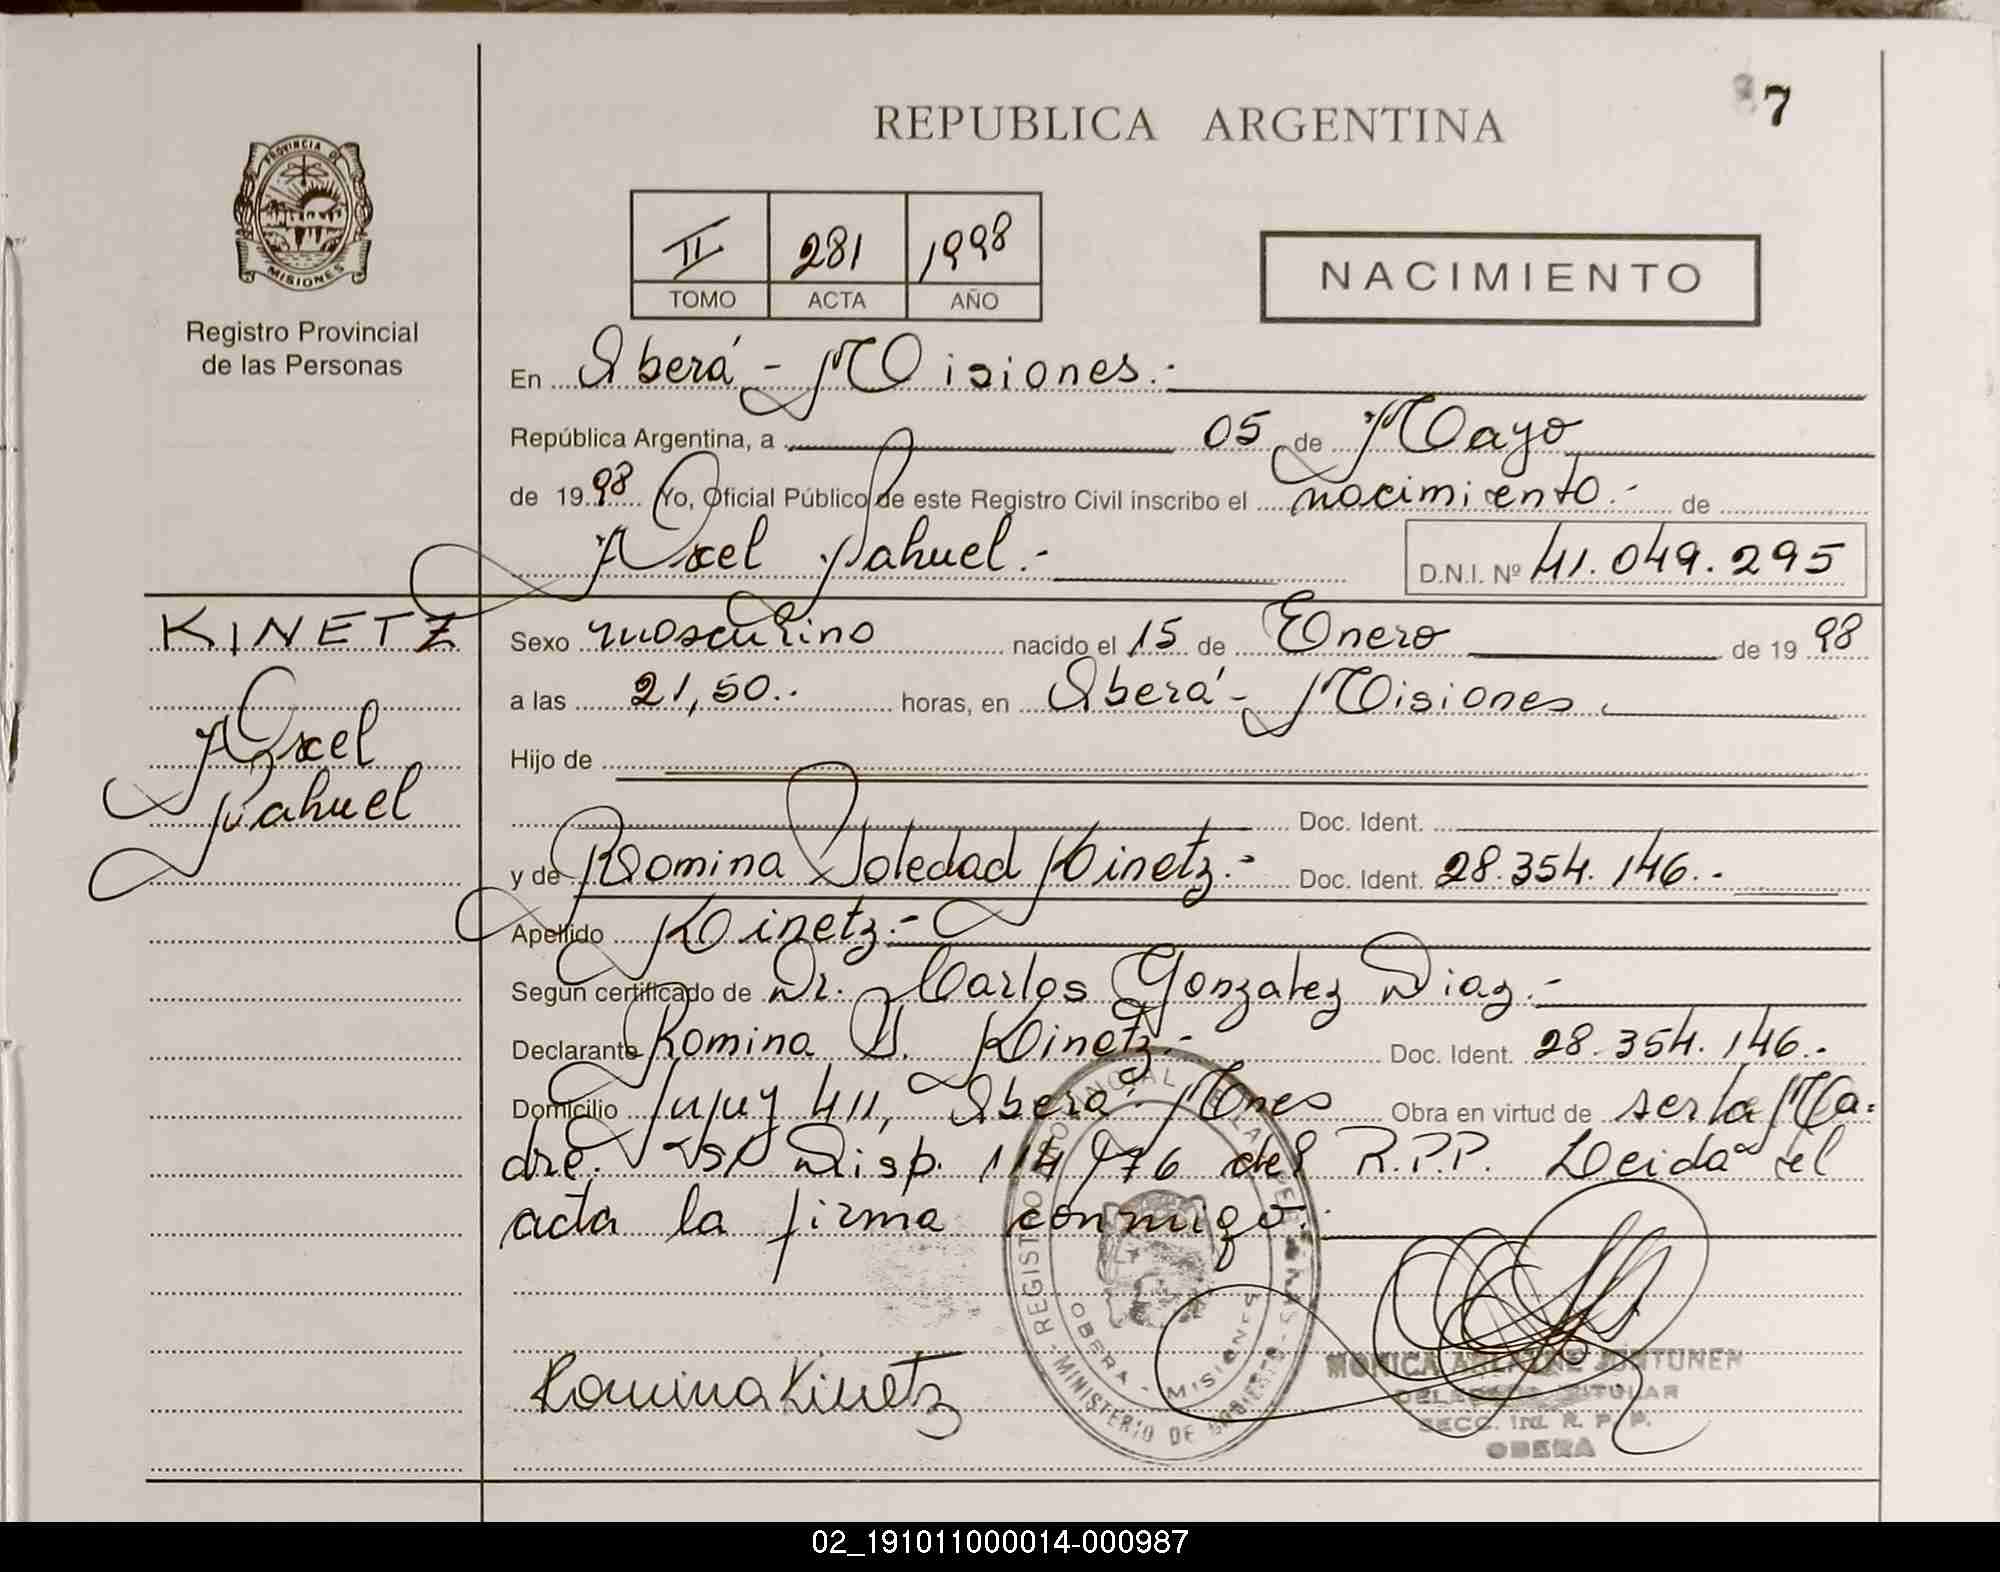 7
REPUBLICA ARGENTINA
PROVINCIA DE
MISIONES
Registro Provincial
de las Personas
II 281 1998
TOMO ACTA AÑO
NACIMIENTO
En Oberá - Misiones.-
República Argentina, a 05 de Mayo
de 1998 Yo, Oficial Público de este Registro Civil inscribo el nacimiento.- de
Axel Nahuel.-
D.N.I. Nº 41.049.295
KINETZ
Axel
Nahuel
Sexo masculino nacido el 15 de Enero de 1998
a las 21,50.. horas, en Oberá - Misiones.
Hijo de
Doc. Ident.
y de Romina Soledad Kinetz.- Doc. Ident. 28.354.146.-
Apellido Kinetz.-
Según certificado de Dr. Carlos Gonzalez Diaz.-
Declarante Romina S. Kinetz.- Doc. Ident. 28.354.146.-
Domicilio Jujuy 411, Oberá - Mnes Obra en virtud de ser la Ma-
dre. Disp. 114/76 del R.P.P. Leida el
acta la firma conmigo.-
Romina Kinetz
REGISTRO PROVINCIAL DE LAS PERSONAS - MINISTERIO DE GOBIERNO -
OBERA - MISIONES
MONICA JUNTUNEN
DELEGADA TITULAR
SECC. R. P. P.
OBERA
02_191011000014-000987